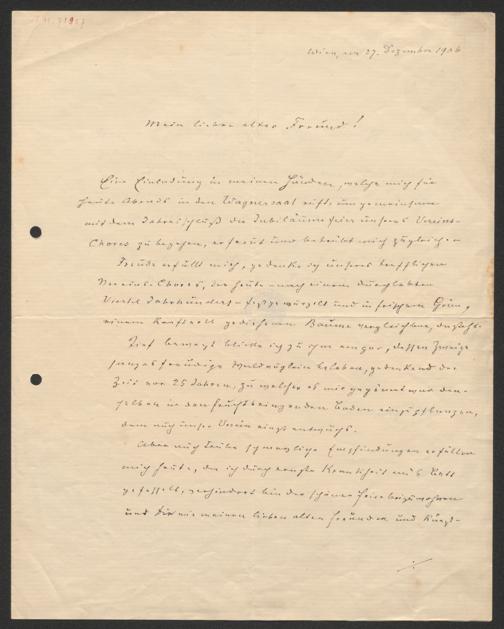 Wien, am 27. Dezember 1906
Mein lieber alter Freund!
Eine Einladung in meinen Händen, welche mich für
heute Abends in den Wagnersaal ruft, um gemeinsam
mit dem Jahresschluß die Jubiläumsfeier unseres Vereins-
Chores zu begehen, erfreut und betrübt mich zugleich.
Freude erfüllt mich, gedenke ich unseres trefflichen
Vereins-Chores, der heute – nach einem durchlebten
Viertel Jahrhundert – festgewurzelt und in frischem Grün,
einem kraftvoll gediehenen Baume vergleichbar, dasteht.
Tief bewegt blicke ich zu ihm empor, dessen Zweige
freudige beleben, gedenkend der
Zeit vor 25 Jahren, zu welcher es mir gegönnt war den-
selben in den fruchtbringenden Boden einzupflanzen,
dem auch unser Verein einst entwuchs.
Aber auch trübe schmerzliche Empfindungen erfüllen
mich heute, da ich durch ernste Krankheit an's Bett
gefesselt, verhindert bin der schönen Feier beizuwohnen
und Dir wie meinen lieben alten Freunden und Kunst-